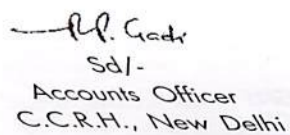 Sd/-
Accounts Officer
C.C.R.H., New Delhi